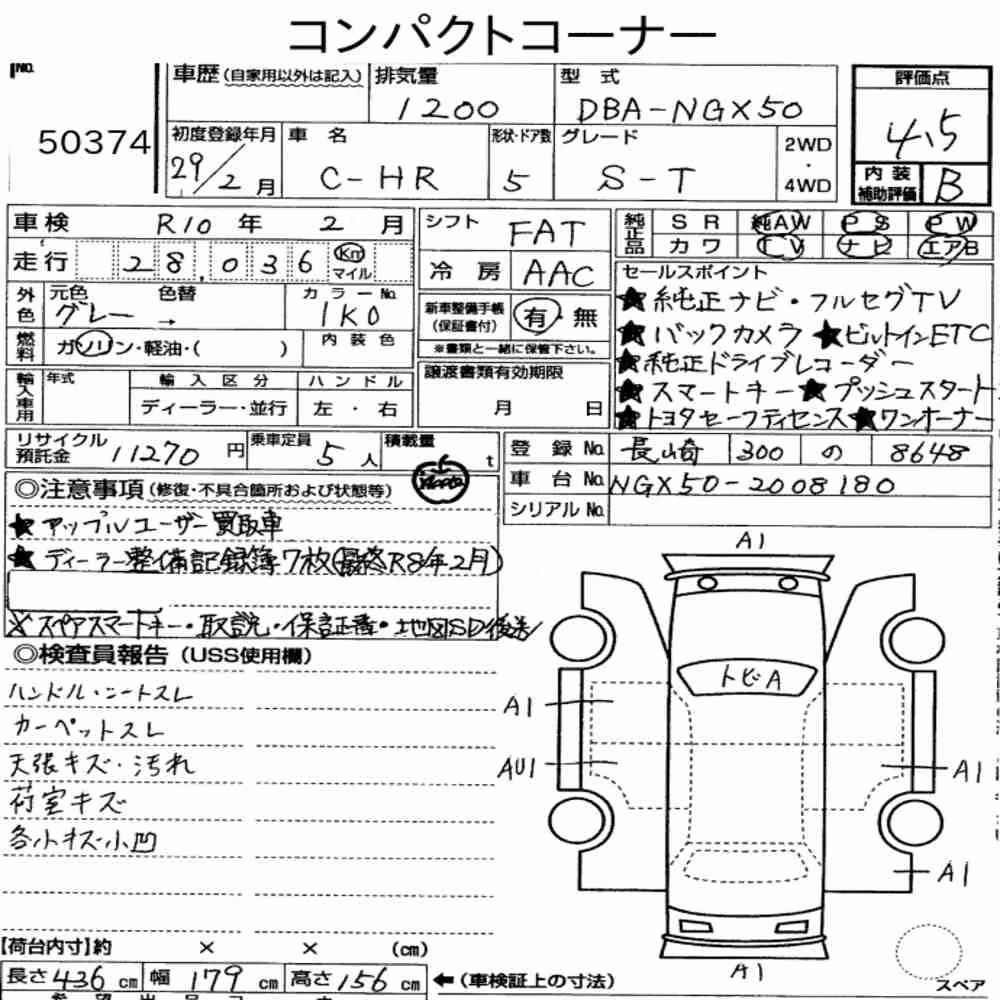 コンパクトコーナー
No. 50374
車歴(自家用以外は記入) 排気量 1200 型式 DBA-NGX50
初度登録年月 29/2月 車名 C-HR 形状・ドア数 5 グレード S-T 2WD・4WD
評価点 4.5
内装補助評価 B
車検 R10年 2月
走行 28,036 Km マイル
外色 元色 グレー 色替 → カラーNo. 1K0
燃料 ガソリン・軽油・( ) 内装色
輸入車用 年式 輸入区分 ディーラー・並行 ハンドル 左・右
シフト FAT
冷房 AAC
新車整備手帳(保証書付) 有・無
※書類と一緒に保管下さい。
譲渡書類有効期限 月 日
純正品 SR 純AW PS PW
カワ TV ナビ エアB
セールスポイント
★純正ナビ・フルセグTV
★バックカメラ ★ビルトインETC
★純正ドライブレコーダー
★スマートキー ★プッシュスタート
★トヨタセーフティセンス ★ワンオーナー
リサイクル預託金 11270円 乗車定員 5人 積載量 t
登録No. 長崎 300 の 8648
車台No. NGX50-2008180
シリアルNo.
◎注意事項(修復・不具合箇所および状態等)
★アップルユーザー買取車
★ディーラー整備記録簿7枚(最終R8年2月)
※スペアスマートキー・取説・保証書・地図SD後送
◎検査員報告(USS使用欄)
ハンドル・シートスレ
カーペットスレ
天張キズ・汚れ
荷室キズ
各小キズ・小凹
A1
トビA
A1
AU1
A1
A1
A1
スペア
【荷台内寸】約 × × (cm)
長さ436cm 幅179cm 高さ156cm ←(車検証上の寸法)